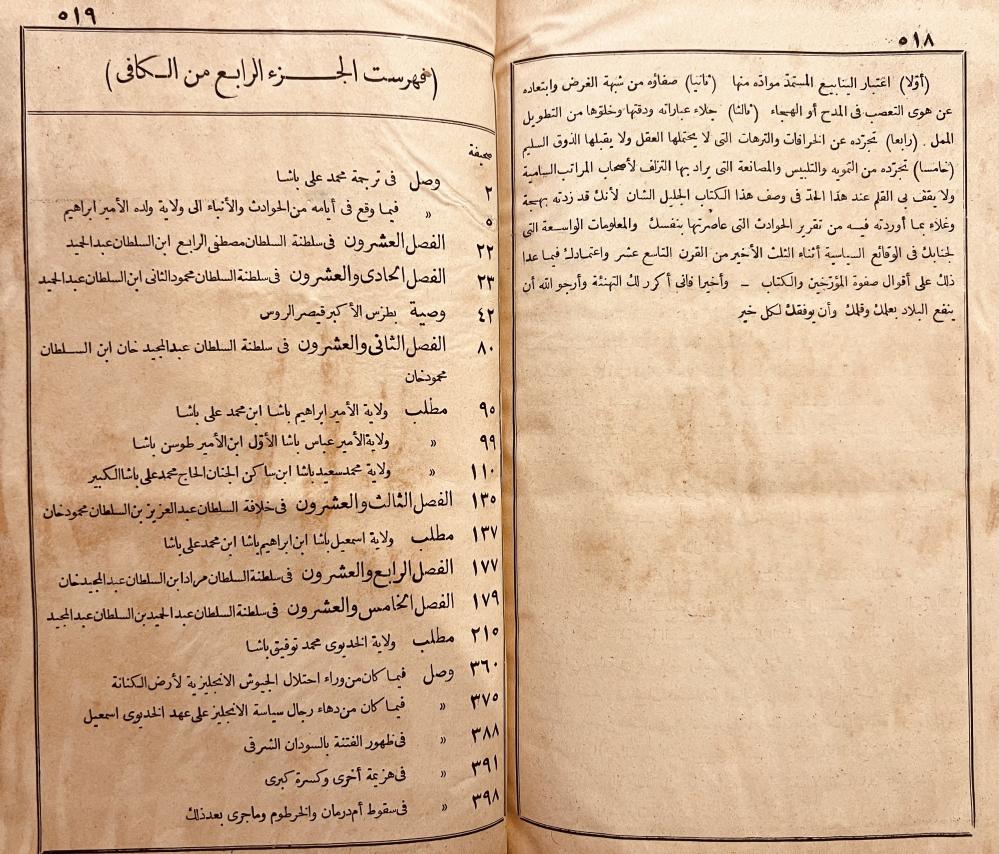 ٥١٨
(أوّلا) اعتبار الينابيع المستمدّ موادّه منها (ثانيا) صفاؤه من شبهة الغرض وابتعاده
عن هوى التعصب فى المدح أو الهجاء (ثالثا) جلاء عباراته ودقتها وخلوّها من التطويل
الممل . (رابعا) تجرّده عن الخرافات والترهات التى لا يحتملها العقل ولا يقبلها الذوق السليم
(خامسا) تجرّده من التمويه والتلبيس والمصانعة التى يراد بها التزلف لأصحاب المراتب السامية
ولا يقف بى القلم عند هذا الحدّ فى وصف هذا الكتاب الجليل الشان لأنك قد زدته بهجة
وغلاء بما أوردته فيه من تقرير الحوادث التى عاصرتها بنفسك والمعلومات الواسعة التى
لجنابك فى الوقائع السياسية أثناء الثلث الأخير من القرن التاسع عشر واعتمادك فيما عدا
ذلك على أقوال صفوة المؤرّخين والكتاب – وأخيرا فانى أكرر لك التهنئة وأرجو الله أن
ينفع البلاد بعلمك وقلمك وأن يوفقك لكل خير
٥١٩
(فهرست الجزء الرابع من الكافى)
صحيفة
٢ وصل فى ترجمة محمد على باشا
٥ » فيما وقع فى أيامه من الحوادث والأنباء الى ولاية ولده الأمير ابراهيم
٢٢ الفصل العشرون فى سلطنة السلطان مصطفى الرابع ابن السلطان عبد الحميد
٢٣ الفصل الحادى والعشرون فى سلطنة السلطان محمود الثانى ابن السلطان عبد الحميد
٤٢ وصية بطرس الأكبر قيصر الروس
٨٠ الفصل الثانى والعشرون فى سلطنة السلطان عبد المجيد خان ابن السلطان
محمود خان
٩٥ مطلب ولاية الأمير ابراهيم باشا ابن محمد على باشا
٩٩ » ولاية الأمير عباس باشا الأوّل ابن الأمير طوسن باشا
١١٠ » ولاية محمد سعيد باشا ابن ساكن الجنان الحاج محمد على باشا الكبير
١٣٥ الفصل الثالث والعشرون فى خلافة السلطان عبد العزيز بن السلطان محمود خان
١٣٧ مطلب ولاية اسمعيل باشا ابن ابراهيم باشا ابن محمد على باشا
١٧٧ الفصل الرابع والعشرون فى سلطنة السلطان مراد ابن السلطان عبد المجيد خان
١٧٩ الفصل الخامس والعشرون فى سلطنة السلطان عبد الحميد بن السلطان عبد المجيد
٢١٥ مطلب ولاية الخديوى محمد توفيق باشا
٣٦٠ وصل فيما كان من وراء احتلال الجيوش الانجليزية لأرض الكنانة
٣٧٥ » فيما كان من دهاء رجال سياسة الانجليز على عهد الخديوى اسمعيل
٣٨٨ » فى ظهور الفتنة بالسودان الشرقى
٣٩١ » فى هزيمة أخرى وكسرة كبرى
٣٩٨ » فى سقوط أم درمان والخرطوم وماجرى بعد ذلك